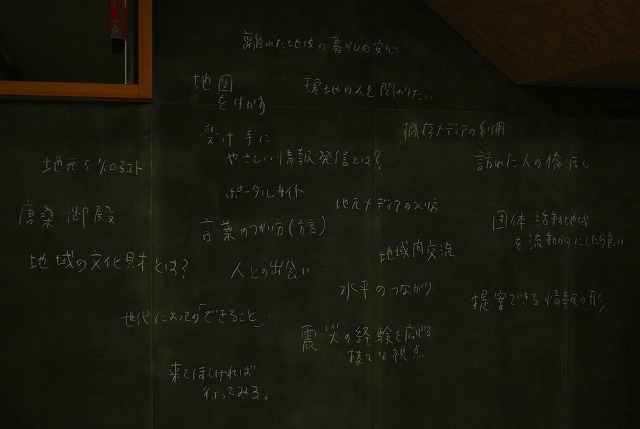 離れた地域の暮らしの安心
地図
を生かす
現地の人と関わりたい
受け手に
やさしい情報発信とは?
既存メディアの利用
地元を知るコト
訪れた人の橋渡し
ポータルサイト
地元メディアのつくり方
唐桑御殿
言葉のつかい方(方言)
団体・活動地域
を流動的にしたら良い
地域内交流
地域の文化財とは?
人との出会い
水平のつながり
提案できる情報の形
世代によっての「できること」
震災の経験を広げる
様々な視点
来てほしければ
行ってみる。